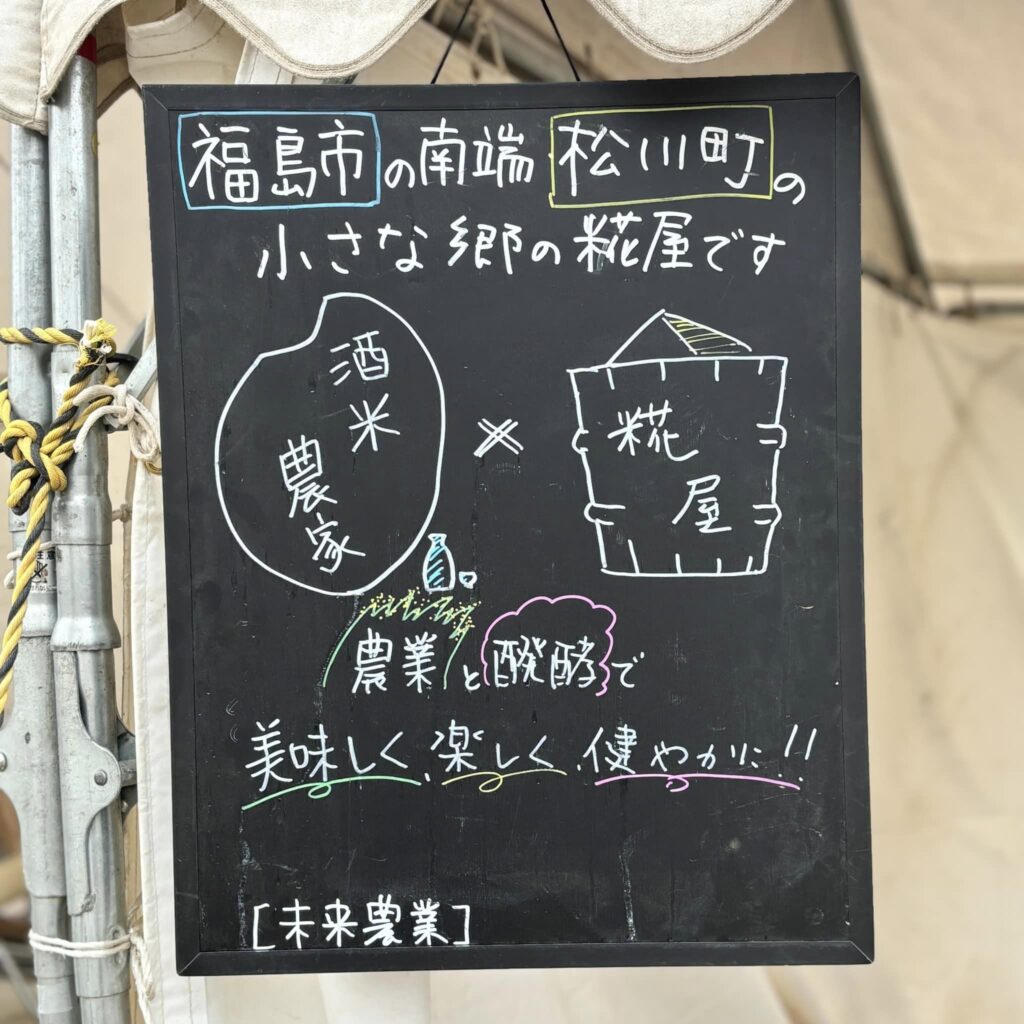 福島市の南端 松川町の
小さな郷の糀屋です
酒米
農家
×
糀
屋
農業と醗酵で
美味しく、楽しく、健やかに!!
[未来農業]